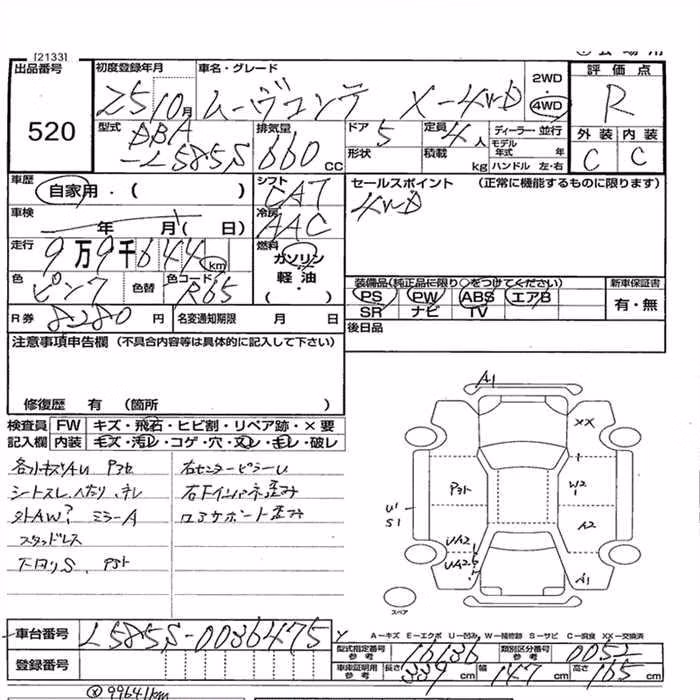 [2133]
出品番号 初度登録年月 車名・グレード 2WD 評価点
520 25 10月 ムーヴコンテ X-4WD 4WD R
型式 DBA-L585S 排気量 660 CC ドア 5 定員 4人 ディーラー・並行 外装 内装
形状 積載 kg モデル年式 年 ハンドル 左・右 C C
車歴 自家用・( ) シフト CAT セールスポイント (正常に機能するものに限ります)
車検 年 月( 日) 冷房 AAC 4WD
走行 9万9千644km 燃料 ガソリン
色 ピンク 色替 色コード R65 軽油 装備品(純正品に限り○をつけてください) 新車保証書
(・) PS PW ABS エアB 有・無
R券 8280円 名変通知期限 月 日 SR ナビ TV
後日品
注意事項申告欄 (不具合内容等は具体的に記入して下さい)
修復歴 有 (箇所 )
検査員 FW キズ・飛石・ヒビ割・リペア跡・×要
記入欄 内装 キズ・汚レ・コゲ・穴・ヌレ・モレ・破レ
各小キズAU Pヨセ 右センターピラーU
シートスレ、ヘタリ、キレ 右Fインパネ歪み
外AW? ミラーA コアサポート歪み
スタッドレス
下回りS、Pヨト
A1
XX
1
Pヨト W2
U1
S1 A2
UA2
UA2
A1
スペア
A-キズ E-エクボ U-凹み W-補修跡 S-サビ C-腐食 XX-交換済
車台番号 L585S-0036475
型式指定番号 参考 16136 類別区分番号 参考 0052
登録番号 車庫証明用 参考 長さ 339cm 幅 147cm 高さ 165cm
99641km